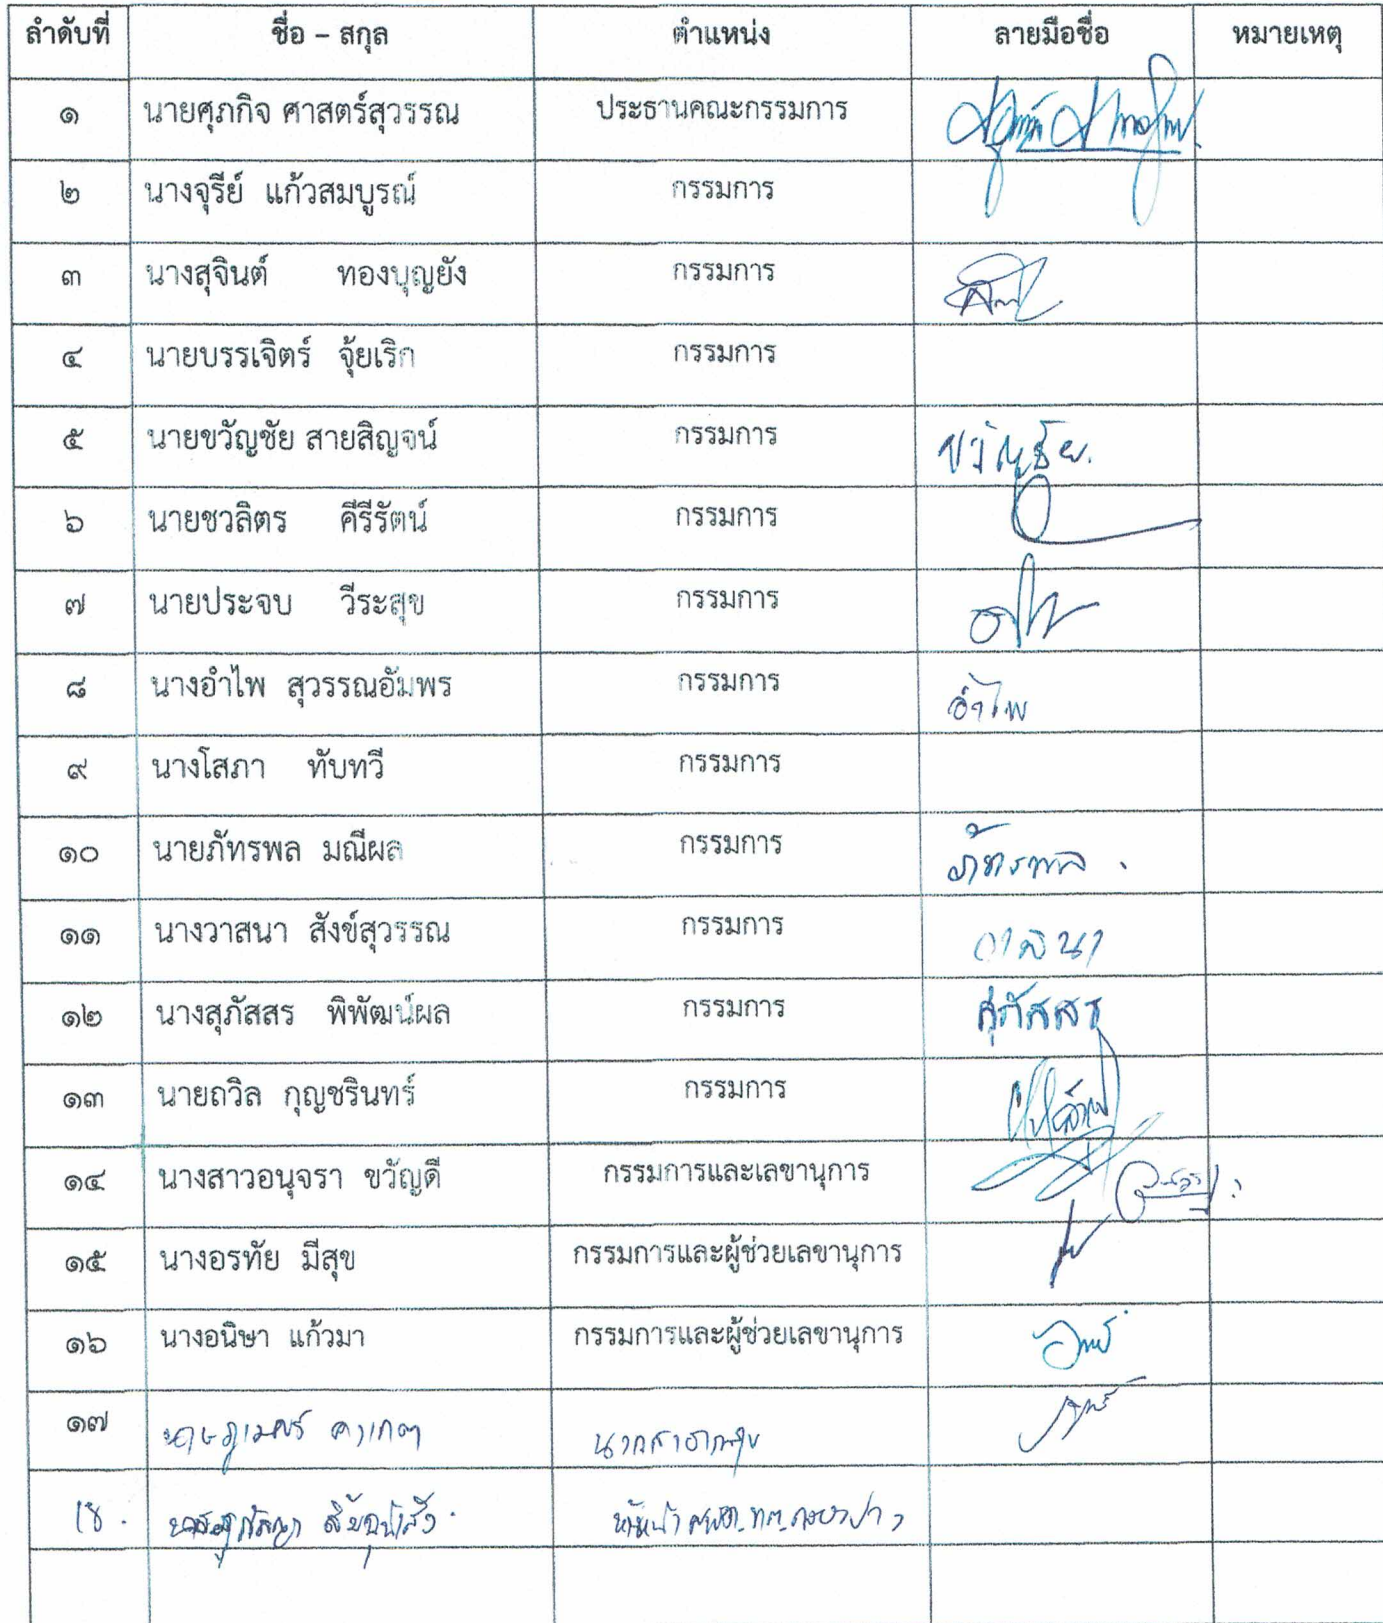 ลำดับที่ ชื่อ – สกุล ตำแหน่ง ลายมือชื่อ หมายเหตุ
๑ นายศุภกิจ ศาสตร์สุวรรณ ประธานคณะกรรมการ
๒ นางจุรีย์ แก้วสมบูรณ์ กรรมการ
๓ นางสุจินต์ ทองบุญยัง กรรมการ
๔ นายบรรเจิตร์ จุ้ยเริก กรรมการ
๕ นายขวัญชัย สายสิญจน์ กรรมการ ขวัญชัย.
๖ นายชวลิตร คีรีรัตน์ กรรมการ
๗ นายประจบ วีระสุข กรรมการ
๘ นางอำไพ สุวรรณอัมพร กรรมการ อำไพ
๙ นางโสภา ทับทวี กรรมการ
๑๐ นายภัทรพล มณีผล กรรมการ ภัทรพล .
๑๑ นางวาสนา สังข์สุวรรณ กรรมการ วาสนา
๑๒ นางสุภัสสร พิพัฒน์ผล กรรมการ สุภัสสร
๑๓ นายถวิล กุญชรินทร์ กรรมการ
๑๔ นางสาวอนุจรา ขวัญดี กรรมการและเลขานุการ
๑๕ นางอรทัย มีสุข กรรมการและผู้ช่วยเลขานุการ
๑๖ นางอนิษา แก้วมา กรรมการและผู้ช่วยเลขานุการ
๑๗
18.